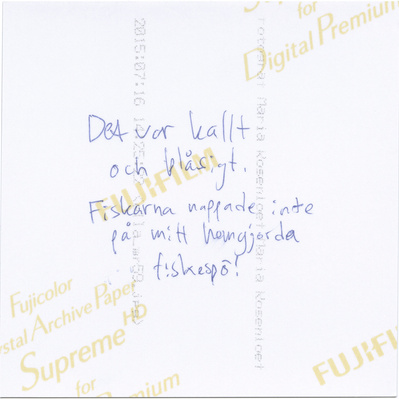 Supreme
for
Digital Premium
2015:07:16
Det var kallt
och blåsigt.
FUJIFILM
Fiskarna nappade inte
på mitt hemgjorda
fiskespö!
Fujicolor
Crystal Archive Paper
Supreme HD
for
Premium
FUJIFILM
Maria